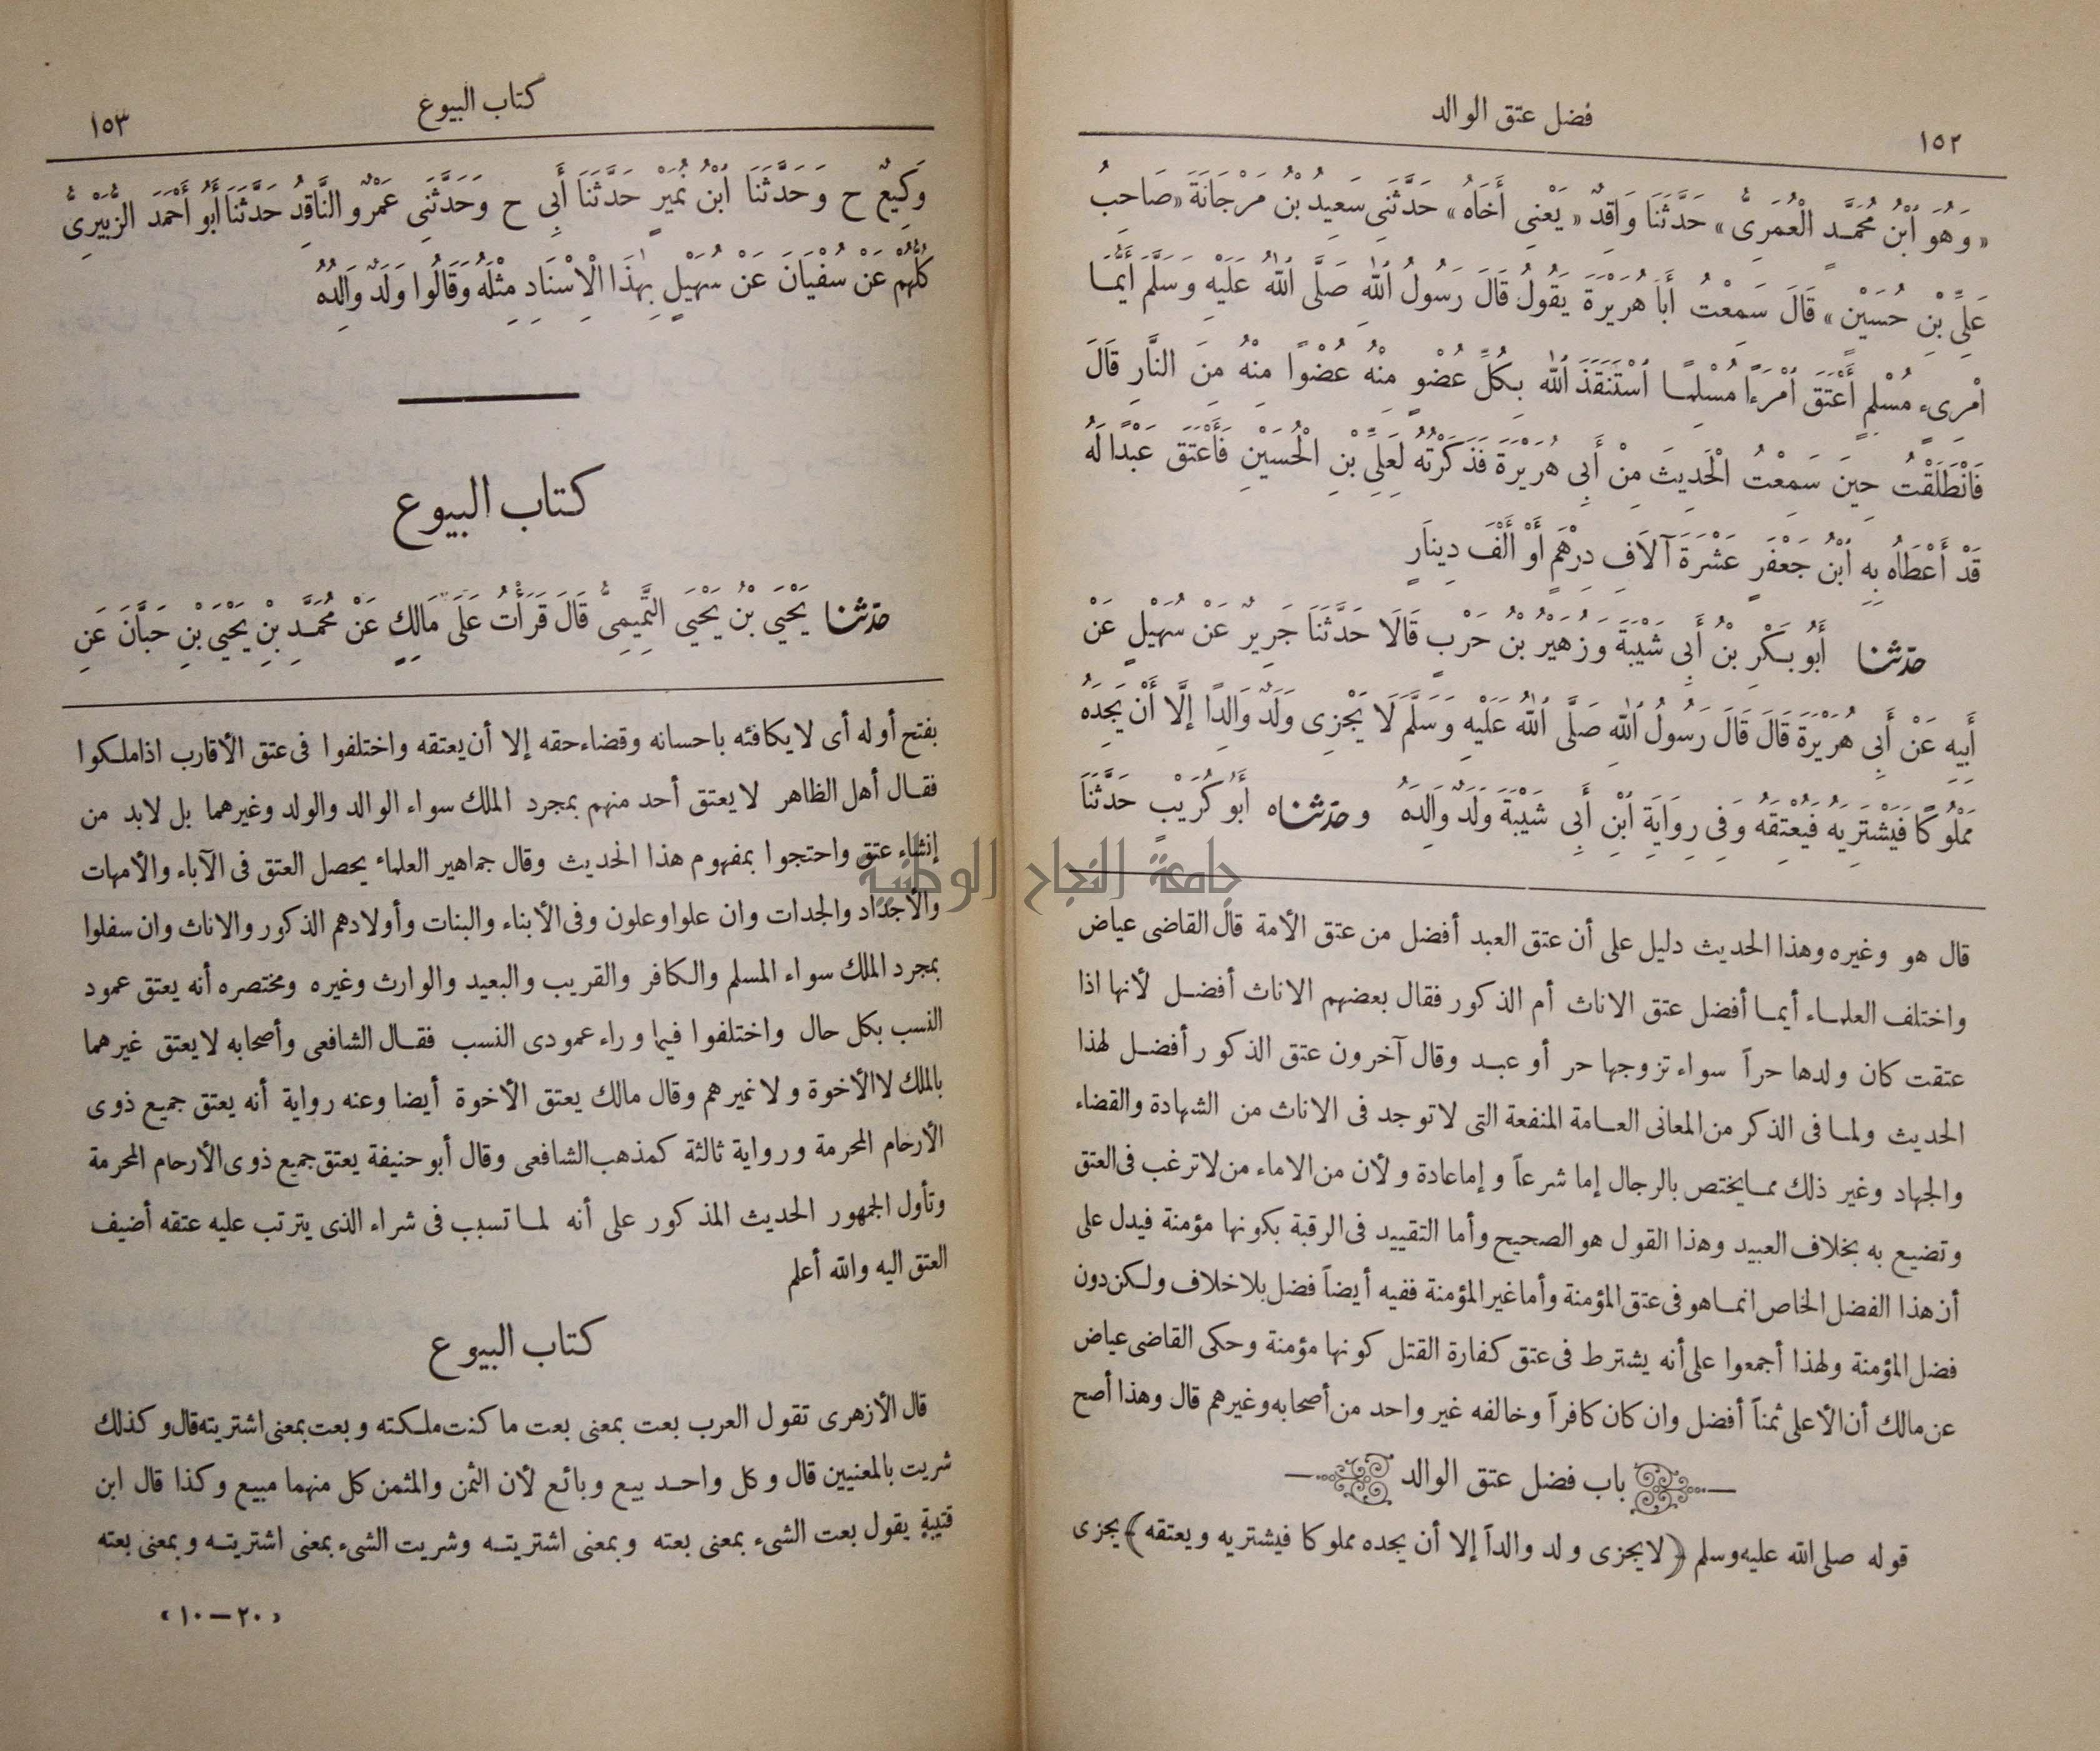 ١٥٢
فضل عتق الوالد
«وَهُوَ ابْنُ مُحَمَّدٍ الْعُمَرِىُّ» حَدَّثَنَا وَاقِدٌ «يَعْنِى أَخَاهُ» حَدَّثَنِى سَعِيدُ بْنُ مَرْجَانَةَ «صَاحِبُ
عَلِىِّ بْنِ حُسَيْنٍ» قَالَ سَمِعْتُ أَبَا هُرَيْرَةَ يَقُولُ قَالَ رَسُولُ اللهِ صَلَّى اللهُ عَلَيْهِ وَسَلَّمَ أَيُّمَا
امْرِىءٍ مُسْلِمٍ أَعْتَقَ امْرَءًا مُسْلِمًا اسْتَنْقَذَ اللهُ بِكُلِّ عُضْوٍ مِنْهُ عُضْوًا مِنْهُ مِنَ النَّارِ قَالَ
فَانْطَلَقْتُ حِينَ سَمِعْتُ الْحَدِيثَ مِنْ أَبِى هُرَيْرَةَ فَذَكَرْتُهُ لِعَلِىِّ بْنِ الْحُسَيْنِ فَأَعْتَقَ عَبْدًا لَهُ
قَدْ أَعْطَاهُ بِهِ ابْنُ جَعْفَرٍ عَشْرَةَ آلَافِ دِرْهَمٍ أَوْ أَلْفَ دِينَارٍ
حدثنا أَبُو بَكْرِ بْنُ أَبِى شَيْبَةَ وَزُهَيْرُ بْنُ حَرْبٍ قَالَا حَدَّثَنَا جَرِيرٌ عَنْ سُهَيْلٍ عَنْ
أَبِيهِ عَنْ أَبِى هُرَيْرَةَ قَالَ قَالَ رَسُولُ اللهِ صَلَّى اللهُ عَلَيْهِ وَسَلَّمَ لَا يَجْزِى وَلَدٌ وَالِدًا إِلَّا أَنْ يَجِدَهُ
مَمْلُوكًا فَيَشْتَرِيَهُ فَيُعْتِقَهُ وَفِى رِوَايَةِ ابْنِ أَبِى شَيْبَةَ وَلَدٌ وَالِدَهُ وحدثناه أَبُو كُرَيْبٍ حَدَّثَنَا
قال هو وغيره وهذا الحديث دليل على أن عتق العبد أفضل من عتق الأمة قال القاضى عياض
واختلف العلماء أيما أفضل عتق الاناث أم الذكور فقال بعضهم الاناث أفضل لأنها اذا
عتقت كان ولدها حراً سواء تزوجها حر أو عبد وقال آخرون عتق الذكور أفضل لهذا
الحديث ولما فى الذكر من المعانى العامة المنفعة التى لا توجد فى الاناث من الشهادة والقضاء
والجهاد وغير ذلك مما يختص بالرجال إما شرعاً وإما عادة ولأن من الاماء من لا ترغب فى العتق
وتضيع به بخلاف العبيد وهذا القول هو الصحيح وأما التقييد فى الرقبة بكونها مؤمنة فيدل على
أن هذا الفضل الخاص انما هو فى عتق المؤمنة وأما غير المؤمنة ففيه أيضاً فضل بلا خلاف ولكن دون
فضل المؤمنة ولهذا أجمعوا على أنه يشترط فى عتق كفارة القتل كونها مؤمنة وحكى القاضى عياض
عن مالك أن الأعلى ثمناً أفضل وان كان كافراً وخالفه غير واحد من أصحابه وغيرهم قال وهذا أصح
باب فضل عتق الوالد
قوله صلى الله عليه وسلم ﴿لا يجزى ولد والداً إلا أن يجده مملوكا فيشتريه ويعتقه﴾ يجزى
كتاب البيوع
١٥٣
وَكِيعٌ ح وَحَدَّثَنَا ابْنُ نُمَيْرٍ حَدَّثَنَا أَبِى ح وَحَدَّثَنِى عَمْرٌو النَّاقِدُ حَدَّثَنَا أَبُو أَحْمَدَ الزُّبَيْرِىُّ
كُلُّهُمْ عَنْ سُفْيَانَ عَنْ سُهَيْلٍ بِهٰذَا الْإِسْنَادِ مِثْلَهُ وَقَالُوا وَلَدٌ وَالِدَهُ
كتاب البيوع
حدثنا يَحْيَى بْنُ يَحْيَى التَّمِيمِىُّ قَالَ قَرَأْتُ عَلَى مَالِكٍ عَنْ مُحَمَّدِ بْنِ يَحْيَى بْنِ حَبَّانَ عَنِ
بفتح أوله أى لا يكافئه باحسانه وقضاء حقه إلا أن يعتقه واختلفوا فى عتق الأقارب اذا ملكوا
فقال أهل الظاهر لا يعتق أحد منهم بمجرد الملك سواء الوالد والولد وغيرهما بل لابد من
إنشاء عتق واحتجوا بمفهوم هذا الحديث وقال جماهير العلماء يحصل العتق فى الآباء والأمهات
والأجداد والجدات وان علوا وعلون وفى الأبناء والبنات وأولادهم الذكور والاناث وان سفلوا
بمجرد الملك سواء المسلم والكافر والقريب والبعيد والوارث وغيره ومختصره أنه يعتق عمود
النسب بكل حال واختلفوا فيما وراء عمودى النسب فقال الشافعى وأصحابه لا يعتق غيرهما
بالملك لا الأخوة ولا غيرهم وقال مالك يعتق الأخوة أيضا وعنه رواية أنه يعتق جميع ذوى
الأرحام المحرمة ورواية ثالثة كمذهب الشافعى وقال أبو حنيفة يعتق جميع ذوى الأرحام المحرمة
وتأول الجمهور الحديث المذكور على أنه لما تسبب فى شراء الذى يترتب عليه عتقه أضيف
العتق اليه والله أعلم
كتاب البيوع
قال الأزهرى تقول العرب بعت بمعنى بعت ما كنت ملكته وبعت بمعنى اشتريته قال وكذلك
شريت بالمعنيين قال وكل واحد بيع وبائع لأن الثمن والمثمن كل منهما مبيع وكذا قال ابن
قتيبة يقول بعت الشىء بمعنى بعته وبمعنى اشتريته وشريت الشىء بمعنى اشتريته وبمعنى بعته
«٢٠ – ١٠»
جامعة النجاح الوطنية